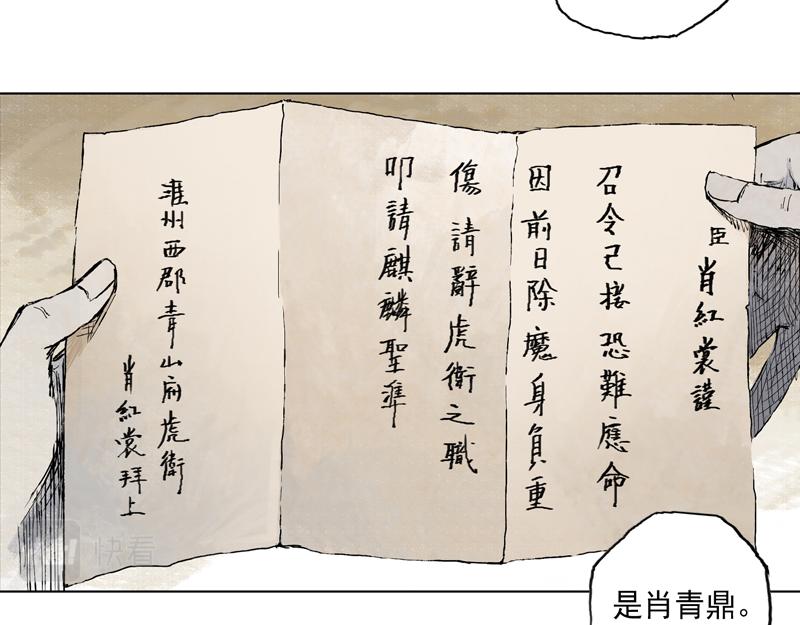 臣肖紅裳謹
召令已接恐難應命
因前日除魔身負重
傷請辭虎衛之職
叩請麒麟聖準
雍州西郡青山府虎衛
肖紅裳拜上
是肖青鼎。
快看